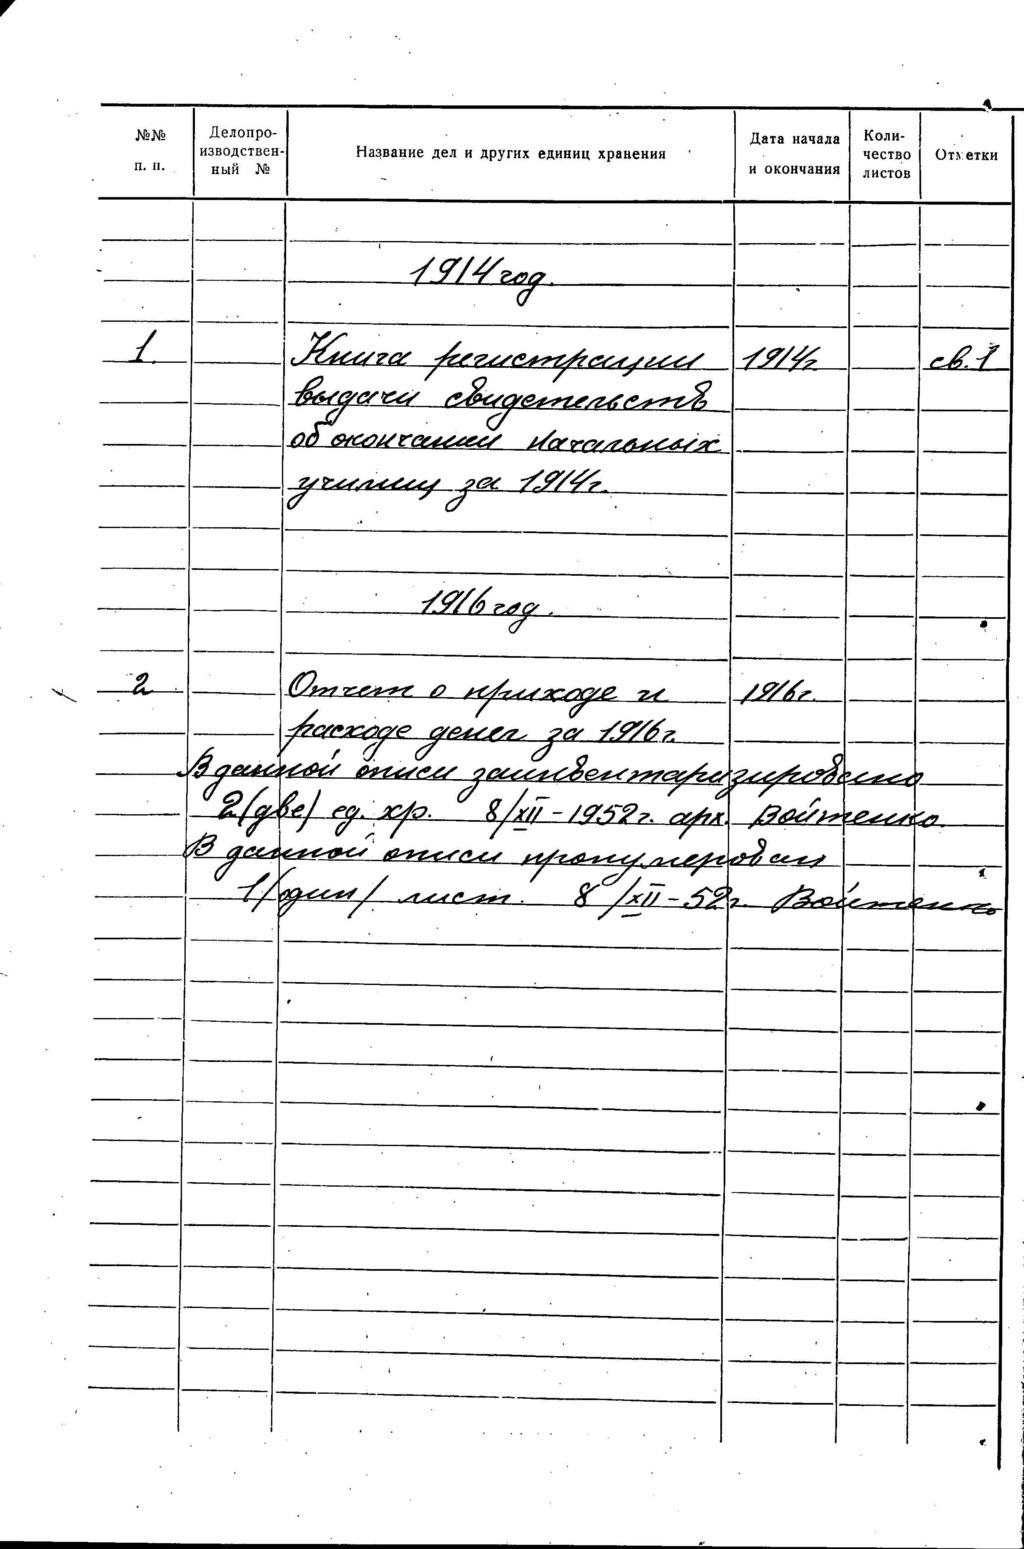 №№ п. п.
Делопро-
изводствен-
ный №
Название дел и других единиц хранения
Дата начала
и окончания
Коли-
чество
листов
Отметки
1914 год.
1. Книга регистрации 1914г св. 1
выдачи свидетельств
об окончании начальных
училищ за 1914г.
1916 год.
2 Отчет о приходе и 1916г.
расходе денег за 1916г.
В данной описи заинвентаризировано
2 (две) ед. хр. 8/XII-1952г. арх. Войтенко
В данной описи пронумерован
1 (один) лист. 8/XII-52г. Войтенко